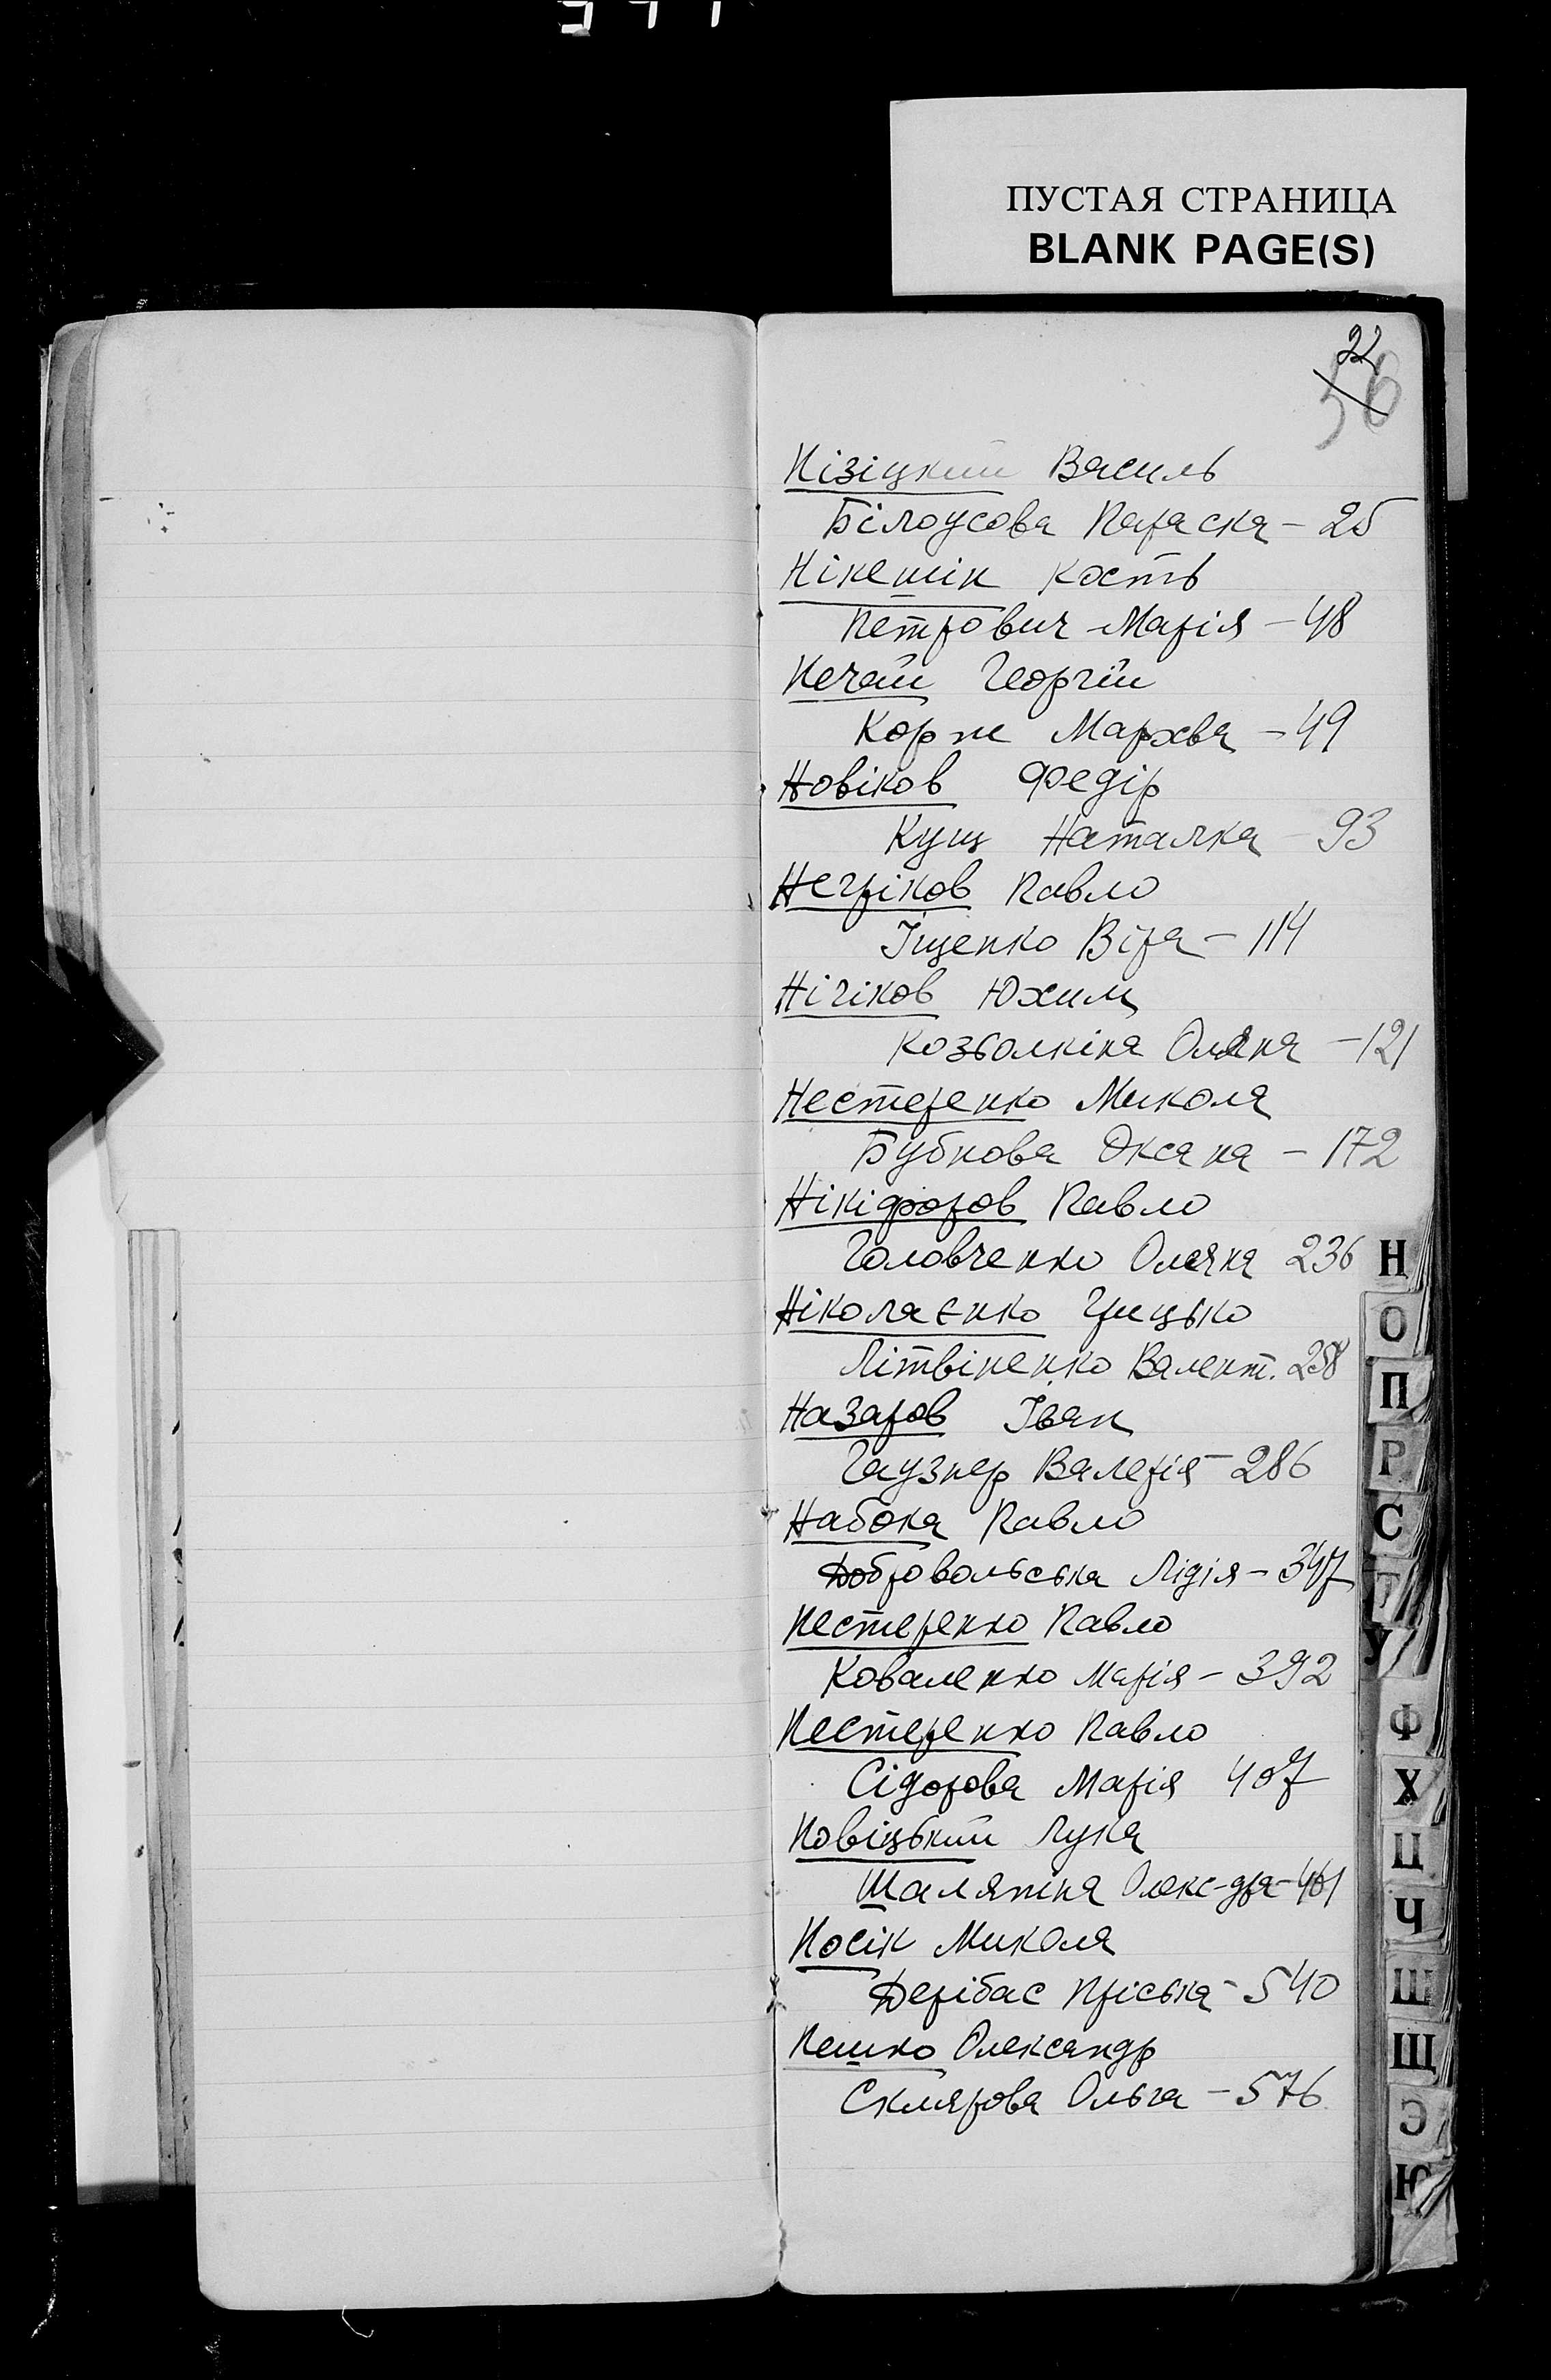 ПУСТАЯ СТРАНИЦА
BLANK PAGE(S)
22
56
Нізіцкий Василь
Білоусова Параска - 25
Нікешін Кость
Петрович Марія - 48
Нечай Георгій
Корж Мархва - 49
Новіков Федір
Кущ Наталка - 93
Негріков Павло
Іщенко Віра - 114
Нічіков Юхим
Козьолкіна Оляна - 121
Нестеренко Микола
Бубнова Оксана - 172
Нікіфоров Павло
Головченко Олена 236
Ніколаєнко Грицько
Літвіненко Валент. 258
Назаров Іван
Гаузнер Валерія - 286
Набока Павло
Добровольська Лідія - 347
Нестеренко Павло
Коваленко Марія - 392
Нестеренко Павло
Сідорова Марія 407
Новіцький Лука
Шаляпіна Олекс-дра - 461
Носік Микола
Дерібас Пріська - 540
Нешко Олександр
Склярова Ольга - 576
Н
О
П
Р
С
Т
У
Ф
Х
Ц
Ч
Ш
Щ
Э
Ю